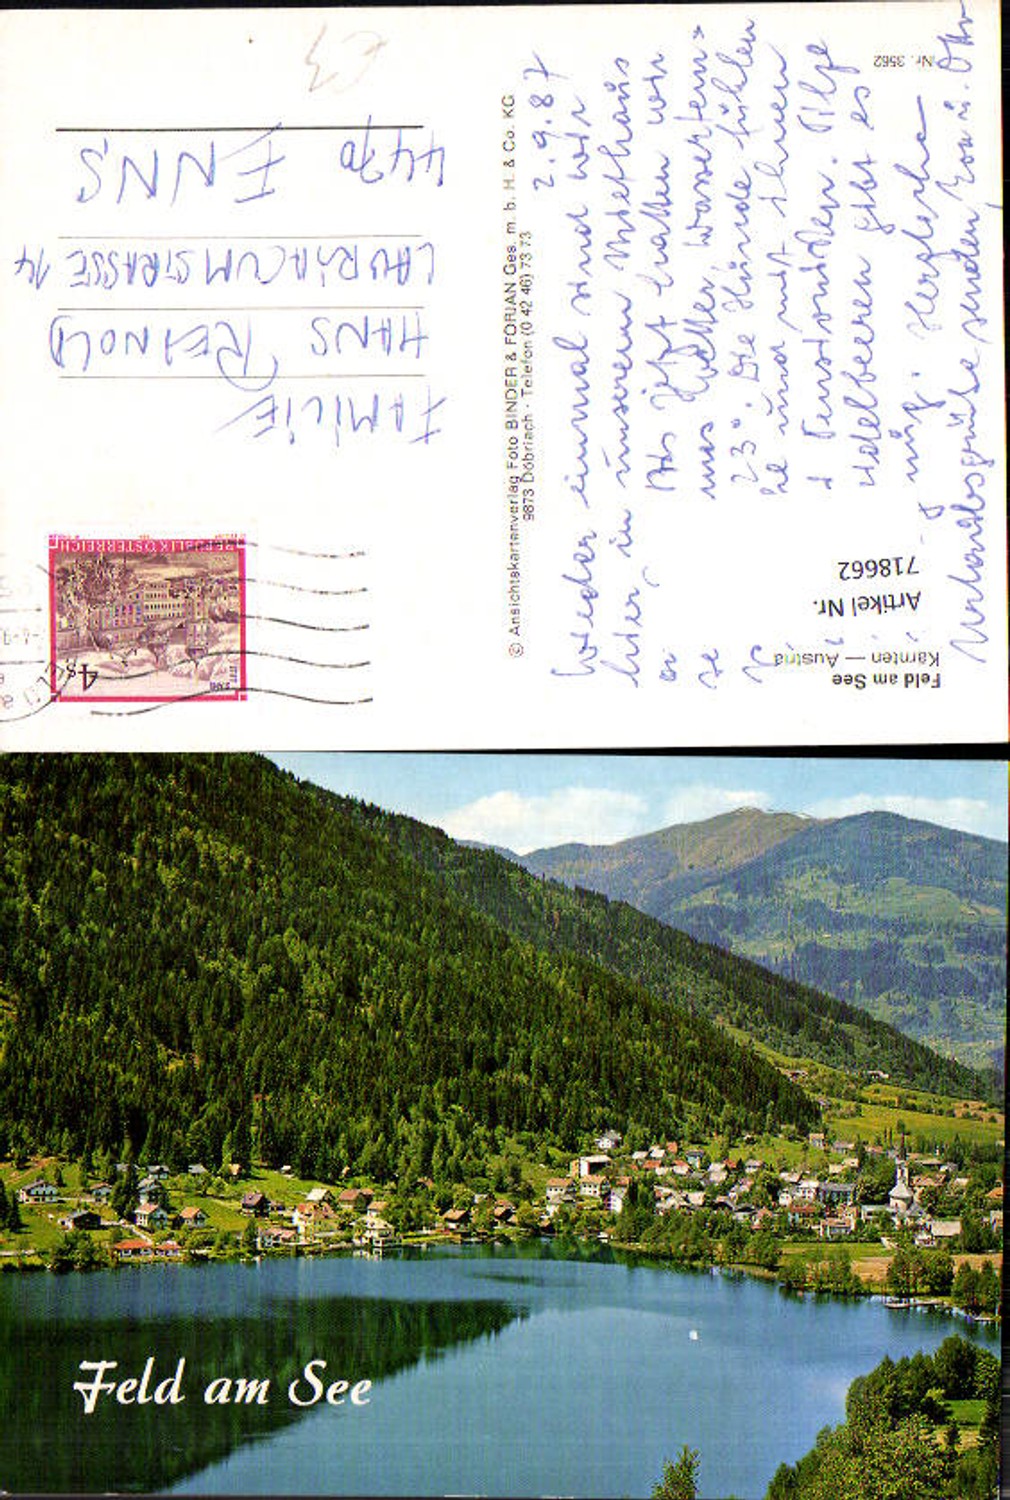 Feld am See
Kärnten — Austria
Nr. 3562
Artikel Nr.
718662
2.9.87
Wieder einmal sind wir
hier in unserem Miethaus
Bis jetzt hatten wir
Wetter, Wassertem=
23°. Die Hunde fühlen
und mit ihnen
d Pensionisten. Pilze
Heidelbeeren gibt es
Herzliche
Urlaubsgrüße senden
© Ansichtskartenverlag Foto BINDER & FORJAN Ges. m. b. H. & Co. KG
9873 Döbriach · Telefon (0 42 46) 73 73
REPUBLIK ÖSTERREICH
4 S
FAMILIE
HANS REINOLD
LAURIACUMSTRASSE 14
4470 ENNS
Feld am See